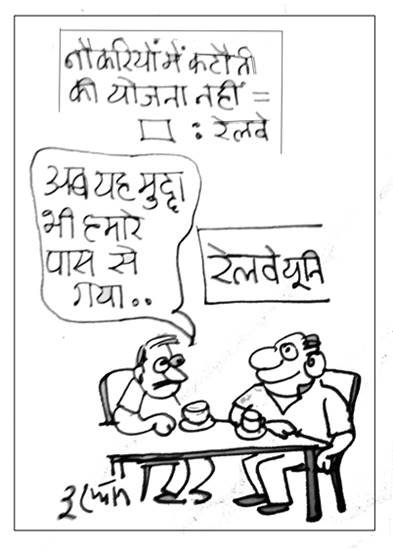 नौकरियों में कटौती
की योजना नहीं =
: रेलवे
अब यह मुद्दा
भी हमारे
पास से
गया..
रेलवे यूनि